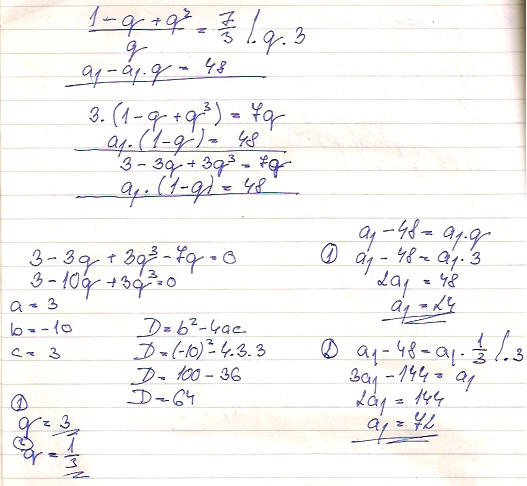 1 - q + q² / q = 7/3 /. q . 3
a₁ - a₁ . q = 48
3 . (1 - q + q³) = 7q
a₁ . (1 - q) = 48
3 - 3q + 3q³ = 7q
a₁ . (1 - q) = 48
3 - 3q + 3q³ - 7q = 0
3 - 10q + 3q³ = 0
a = 3
b = -10
c = 3
D = b² - 4ac
D = (-10)² - 4.3.3
D = 100 - 36
D = 64
① q = 3
② q = 1/3
a₁ - 48 = a₁ . q
① a₁ - 48 = a₁ . 3
2a₁ = 48
a₁ = 24
② a₁ - 48 = a₁ . 1/3 /. 3
3a₁ - 144 = a₁
2a₁ = 144
a₁ = 72